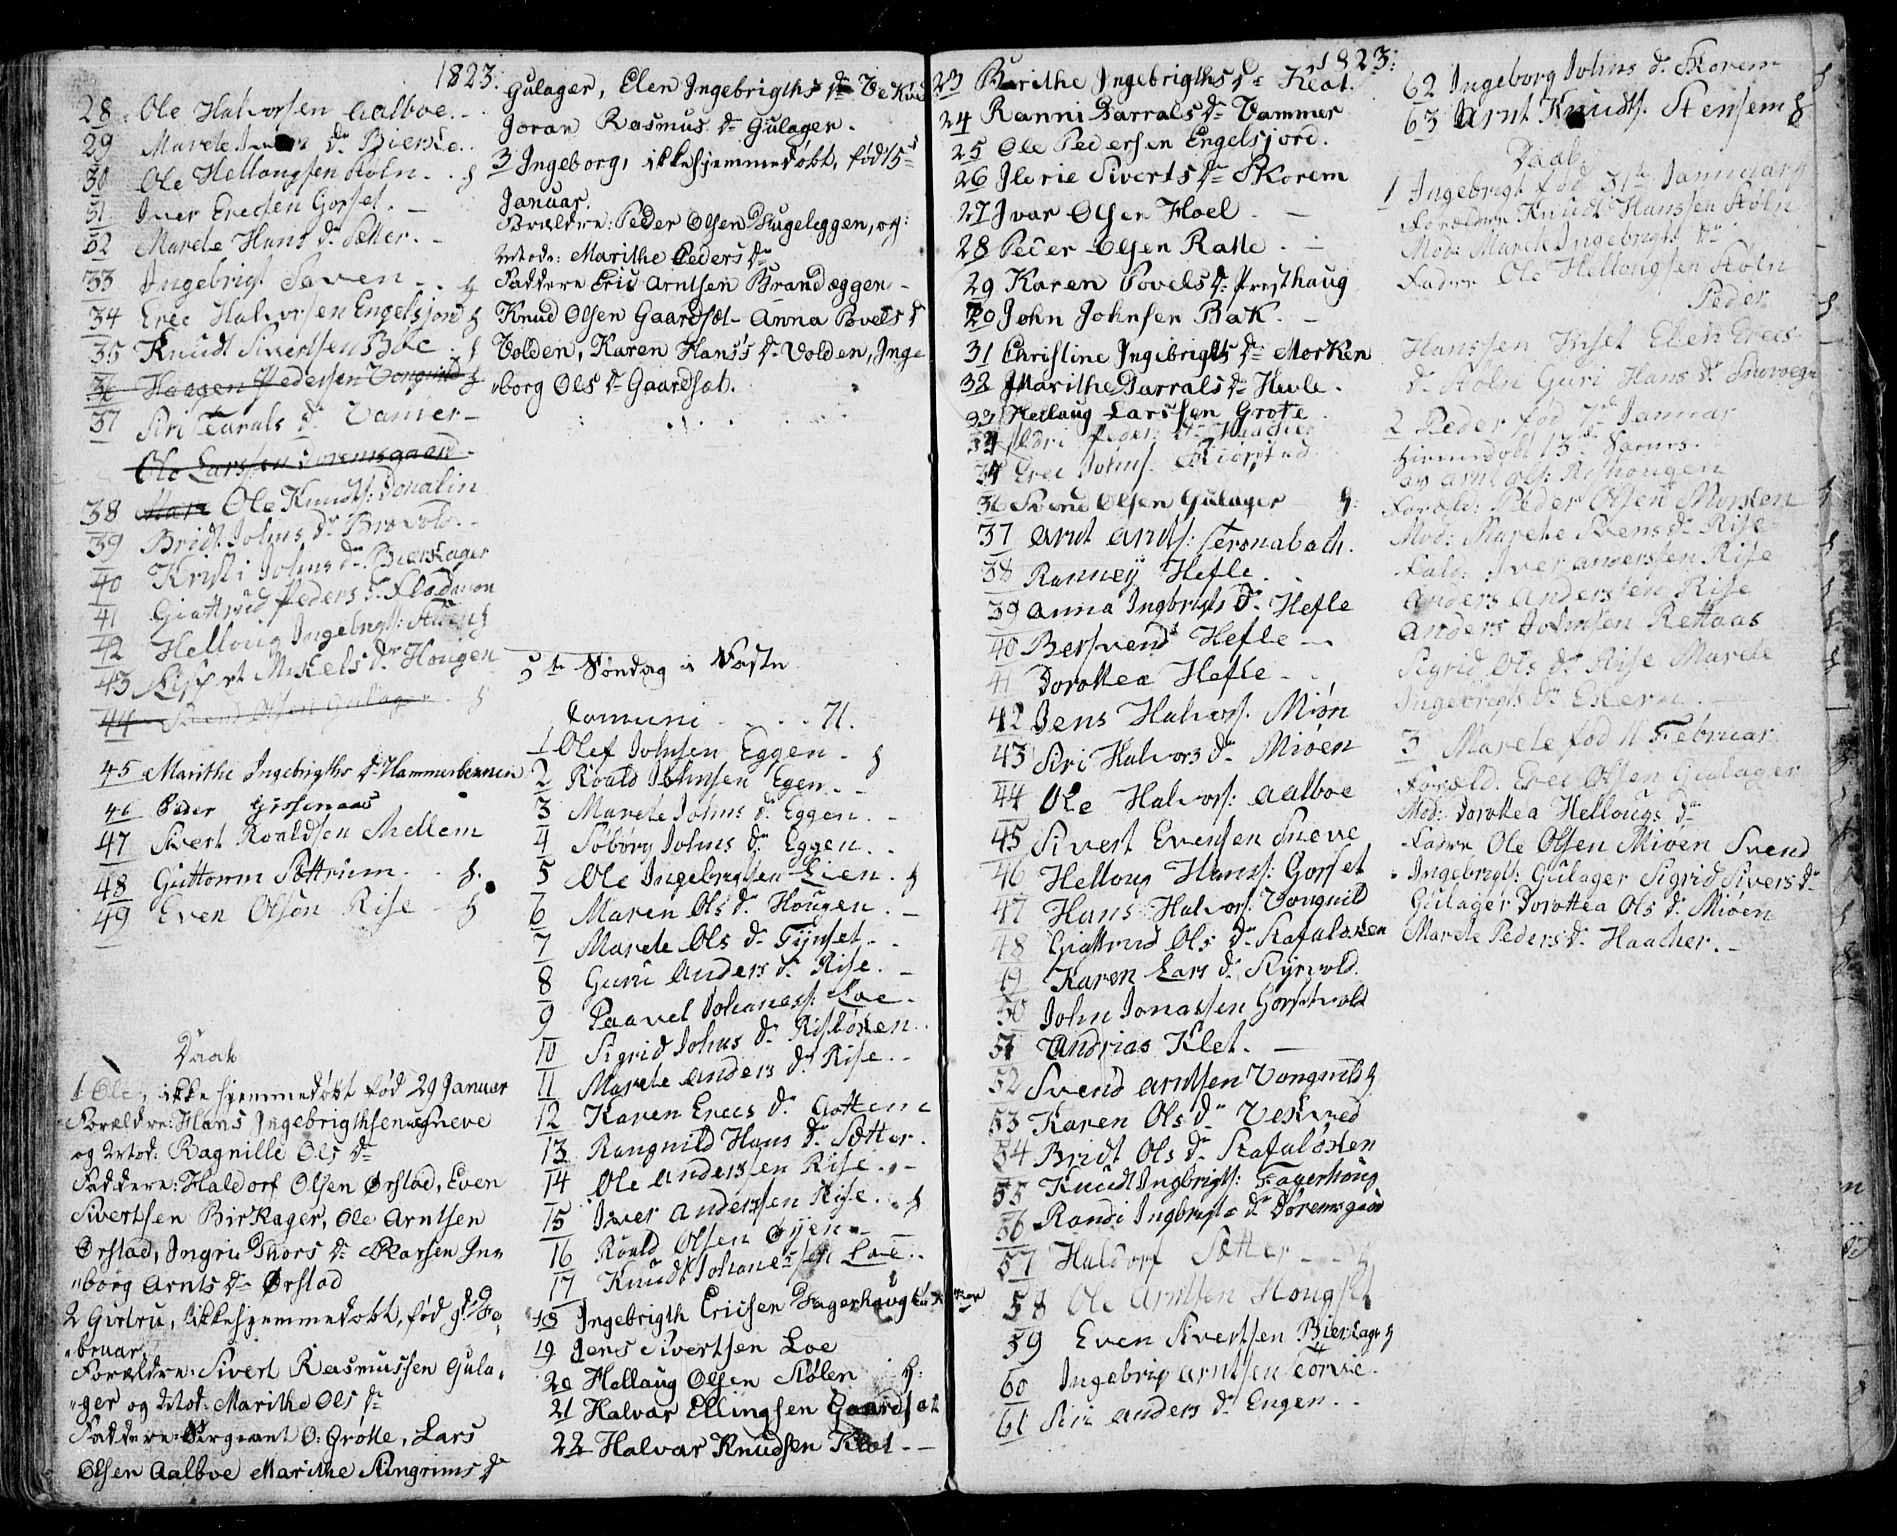 1823.
28 Ole Halvorsen Aalboe. -
29 Marete Dr Bierke.
30 Ole Hellougsen Støln - .
31 Iver Erecsen Gorset. -
32 Marete Hans Dr Sætter. -
33 Ingebrigt Saven - .
34 Erec Halvorsen Engelsjord
35 Knudt Sivertsen Boe .
36 Haagen Pedersen Vongnild
37 Siri Tarals Dr Vamer -
Ole Larssen Doremsgaard.
38 Mare Ole Knudts: Donalin
39 Bridt Johns Dr Brovold. -
40 Kristi Johns Dr Bierkager
41 Giattrud Peders Dr Flodmon
42 Helloug Ingebrigts:
43 Mikels Dr Hougen
44 Svend Olsen Gulager .
45 Marithe Ingebrigths Dr Hammerbennen
46 Peder Gissenaas
47 Sivert Roaldsen Mellem
48 Guttorm Sættrum . .
49 Even Olsøn Rise -
Daab
1 Ole, ikke hjemmedøbt fød 29 Januar
Forældre: Hans Ingebrigthsen Sneve
og Mod: Ragnille Ols Dr
Faddere: Haldorf Olsen Ørstad, Even
Sivertsen Birkager, Ole Arntsen
Ørstad, Ingri Thors Dr Skarsen In
"borg Arnts Dr Ørstad
2 Girtru, ikke hjemmedøbt, fød 9de Fe
"bruar,
Forældre: Sivert Rasmussen Gula
"ger og Mod: Marithe Ols Dr
Faddere: Sergeant O: Grøtte, Lars
Olsen Aalboe Marithe Stingrims Dr
Gulager, Elen Ingebrigths Dr
Joran Rasmus Dr Gulager.
3 Ingeborg, ikke hjemmedøbt, født 5te
Januar.
Forældre: Peder Olsen Hugeleggen, og:
Mode: Marithe Peders Dr
Faddere Eric Arntsen Brandæggen -
Knud Olsen Gaardsæt - Anna Povels D
Volden, Karen Hans's Dr Volden, Inge
"borg Ols Dr Gaardsæt.
5te Søndag i Faste
Comuni - - - . 71.
1 Olef Johnsen Eggen -
2 Roald Johnsen Egen - -
3 Marete Johns Dr Eggen . -
4 Søbørg Johns Dr Eggen . .
5 Ole Ingebrigtsen Lien .
6 Maren Ols Dr Hougen . -
7 Marete Ols Dr Tynset - .
8 Guru Anders Dr Rise . -
9 Paavel Johaness: Loe .
10 Sigrid Johns Dr Risløkken . .
11 Marete Anders Dr Rise . -
12 Karen Erecs Dr Gottem
13 Rangnild Hans Dr Sætter .
14 Ole Anderssen Rise . -
15 Iver Anderssen Rise . .
16 Roald Olsen Øyen -
17 Knudt Johanessen Loe . .
18 Ingebrigth Ericsen Fagerhaug
19 Jens Sivertsen Loe
20 Hellaug Olsen Stølen
21 Halvar Ellingsen Gaardsæt
22 Halvar Knudsen Klæt - -
1823:
23 Marithe Ingebrigths Dr Kleat.
24 Ranni Darrals Dr Vammer
25 Ole Pedersen Engelsjord.
26 Ilerie Siverts Dr Skorem
27 Ivar Olsen Hoel . -
28 Peder Olsen Ratte . -
29 Karen Povels Dr Presthaug
30 John Johnsen Bak . -
31 Christine Ingebrigts Dr Morken
32 Marithe Darrals Dr Hevle .
33 Hellaug Larssen Grøtte .
34 Ildri Peders Dr Haacker
34 Erec Johns.
36 Svend Olsen Gulager
37 Arnt Arnts:
38 Ranney Hefle .
39 Anna Ingbrigts Dr Hefle
40 Bersvend Hefle - -
41 Dorottea Hefle - .
42 Jens Halvors. Miøn
43 Siri Halvors Dr Miøen
44 Ole Halvors: Aalboe
45 Sivert Evensen Sneve
46 Helloug Hanss: Gorset
47 Hans Halvors: Vongnild
48 Giattrud Ols Dr Stafaløkken
49 Karen Lars Dr
50 John Jonassen Gorsetvold
51 Andrias Klet . -
52 Svend Arntsen Vongnild
53 Karen Ols Dr Vekved
54 Bridt Ols Dr Stafaløkken
55 Knudt Ingbrigts: Fagerhoug
56 Randi Ingbrigts Dr Doremsgaard
57 Haldorf Sætter - -
58 Ole Arntsen Hougset
59 Even Sivertsen Bierkager
60 Ingebrigt Arntsen Torvie .
61 Siri Anders Dr Engen . .
62 Ingeborg Johns Dr Skorem
63 Arnt Knudts: Stensem
Daab.
1 Ingebrigt fød 31te Januuary
Forældre Knudt Hanssen Støln
Mod: Marete Ingebrigts Dr
Fadre Ole Hellougsen Støln
Peder
Hanssen Elen Erecs
Dr Støln Guri Hans Dr
2 Peder fød 7de Januar
hiemmedøbt 13de
av Arnt Ols:
Foræld: Peder Olsen Morken
Mod: Marete Svens Dr Rise
Fald: Iver Anderssen Rise
Anders Andersten Rise
Anders Johnsen Rettaas
Sigrid Ols Dr Rise Marete
Ingebrigts Dr
3 Marete fød 11 Februar
Foræld. Erec Olsen Gulager
Mod: Dorottea Hellougs Dr
Fadre Ole Olsen Miøen Svend
Ingebrigts: Gulager Sigrid Sivers Dr
Gulager Dorottea Ols Dr Miøen
Marete Peders Dr Haacker . -